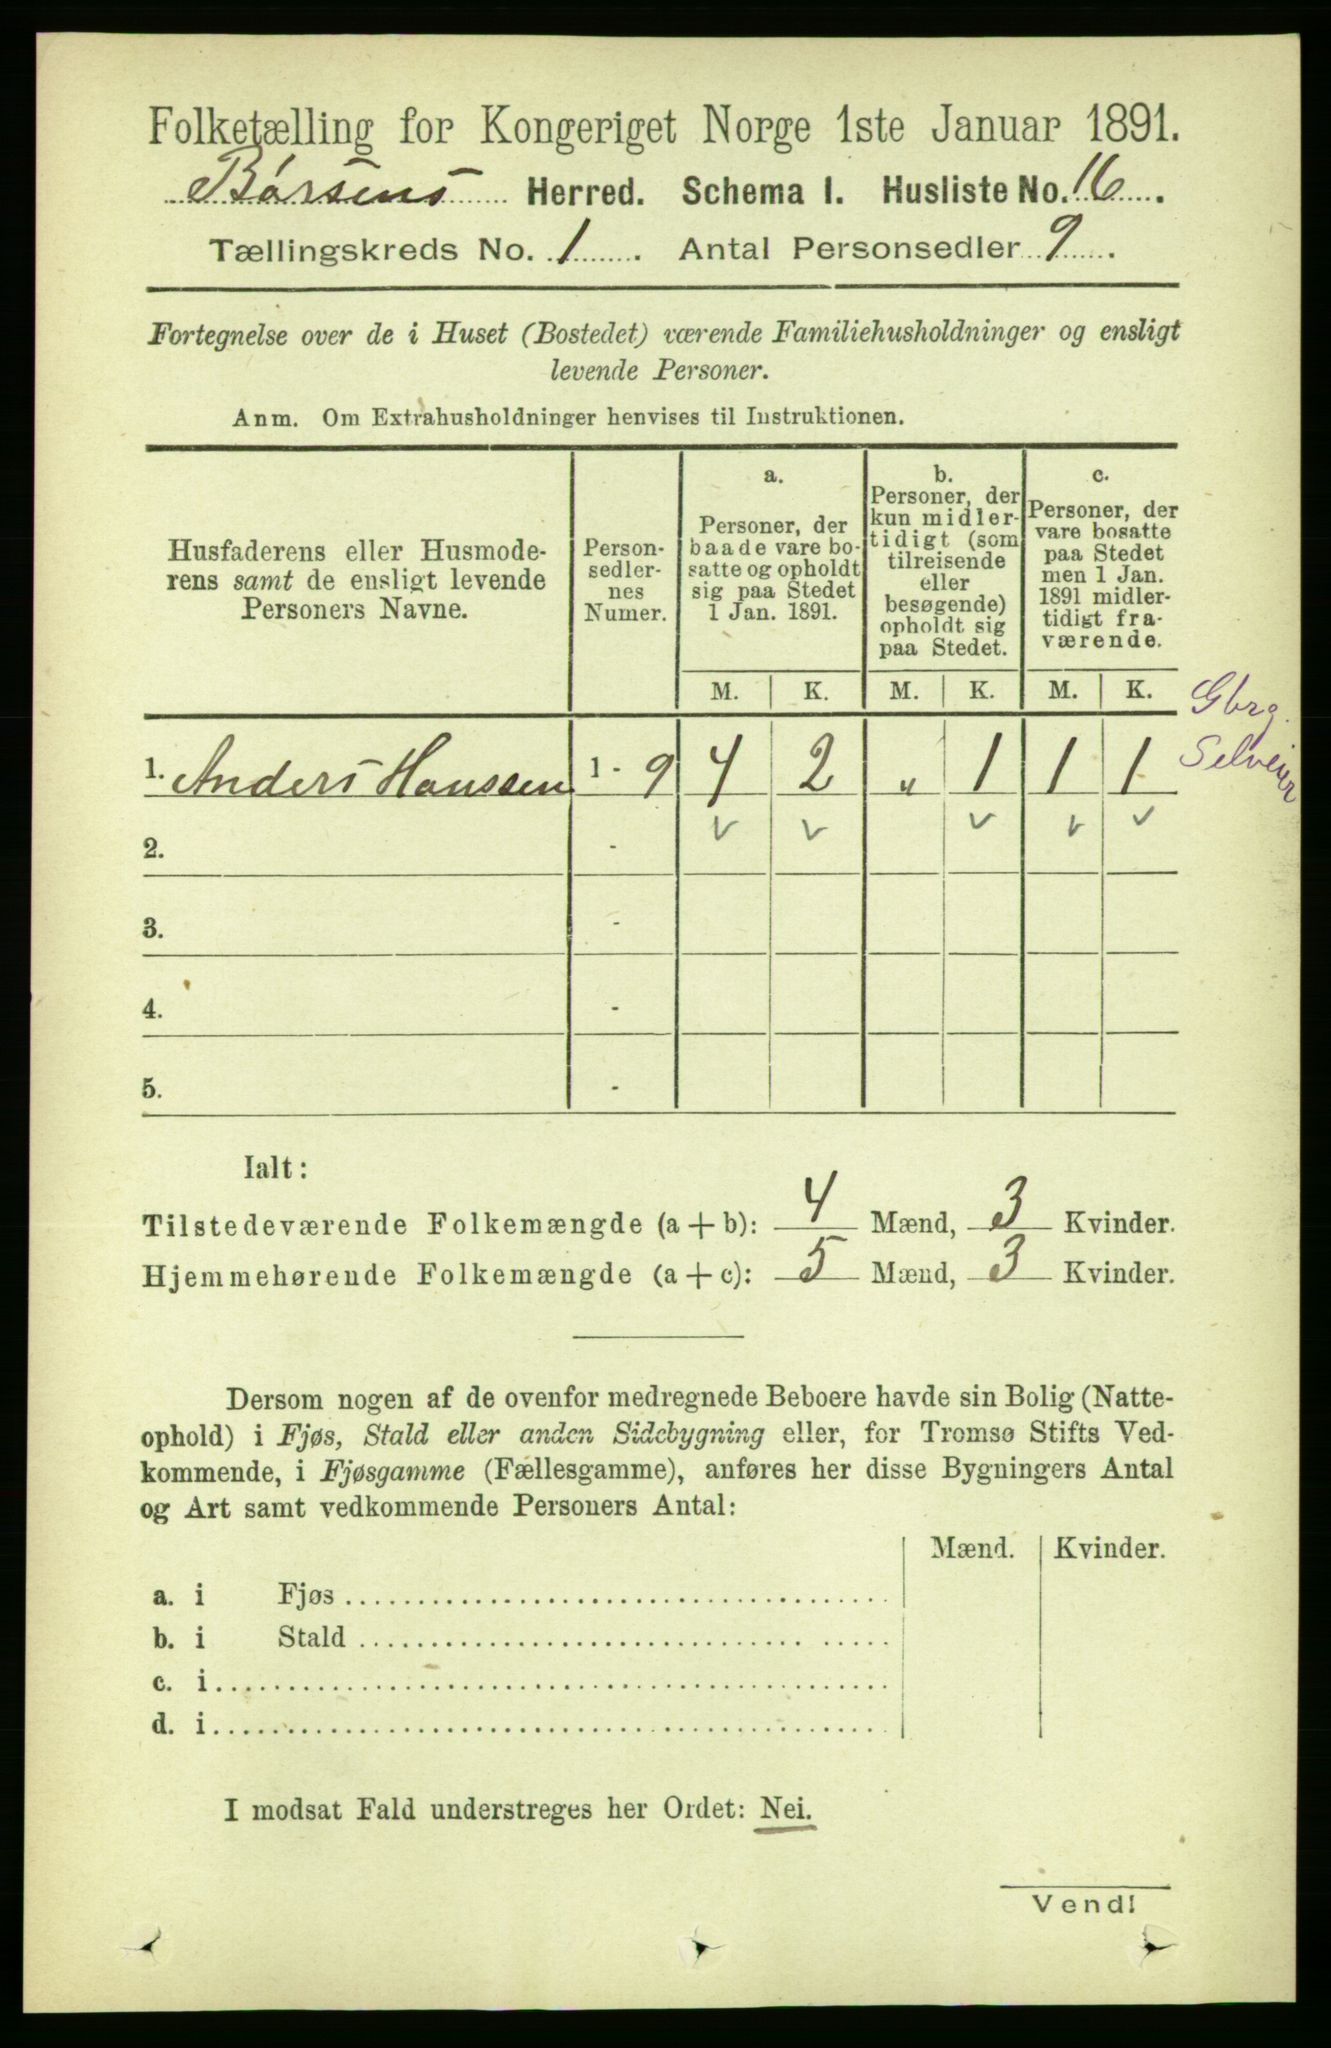 Folketælling for Kongeriget Norge 1ste Januar 1891.
Børsens Herred. Schema I. Husliste No. 16.
Tællingskreds No. 1. Antal Personsedler 9.
Fortegnelse over de i Huset (Bostedet) værende Familiehusholdninger og ensligt
levende Personer.
Anm. Om Extrahusholdninger henvises til Instruktionen.
Husfaderens eller Husmode-
rens samt de ensligt levende
Personers Navne.
Person-
sedler-
nes
Numer.
a.
Personer, der
baade vare bo-
satte og opholdt
sig paa Stedet
1 Jan. 1891.
b.
Personer, der
kun midler-
tidigt (som
tilreisende
eller
besøgende)
opholdt sig
paa Stedet.
c.
Personer, der
vare bosatte
paa Stedet
men 1 Jan.
1891 midler-
tidigt fra-
værende.
M. K. M. K. M. K.
Gbrg.
Selveier
1. Anders Hanssen 1 - 9 4 2 " 1 1 1
2. -
3. -
4. -
5. -
Ialt:
Tilstedeværende Folkemængde (a + b): 4 Mænd, 3 Kvinder.
Hjemmehørende Folkemængde (a + c): 5 Mænd, 3 Kvinder.
Dersom nogen af de ovenfor medregnede Beboere havde sin Bolig (Natte-
ophold) i Fjøs, Stald eller anden Sidebygning eller, for Tromsø Stifts Ved-
kommende, i Fjøsgamme (Fællesgamme), anføres her disse Bygningers Antal
og Art samt vedkommende Personers Antal:
Mænd. Kvinder.
a. i Fjøs
b. i Stald
c. i
d. i
I modsat Fald understreges her Ordet: Nei.
Vend!